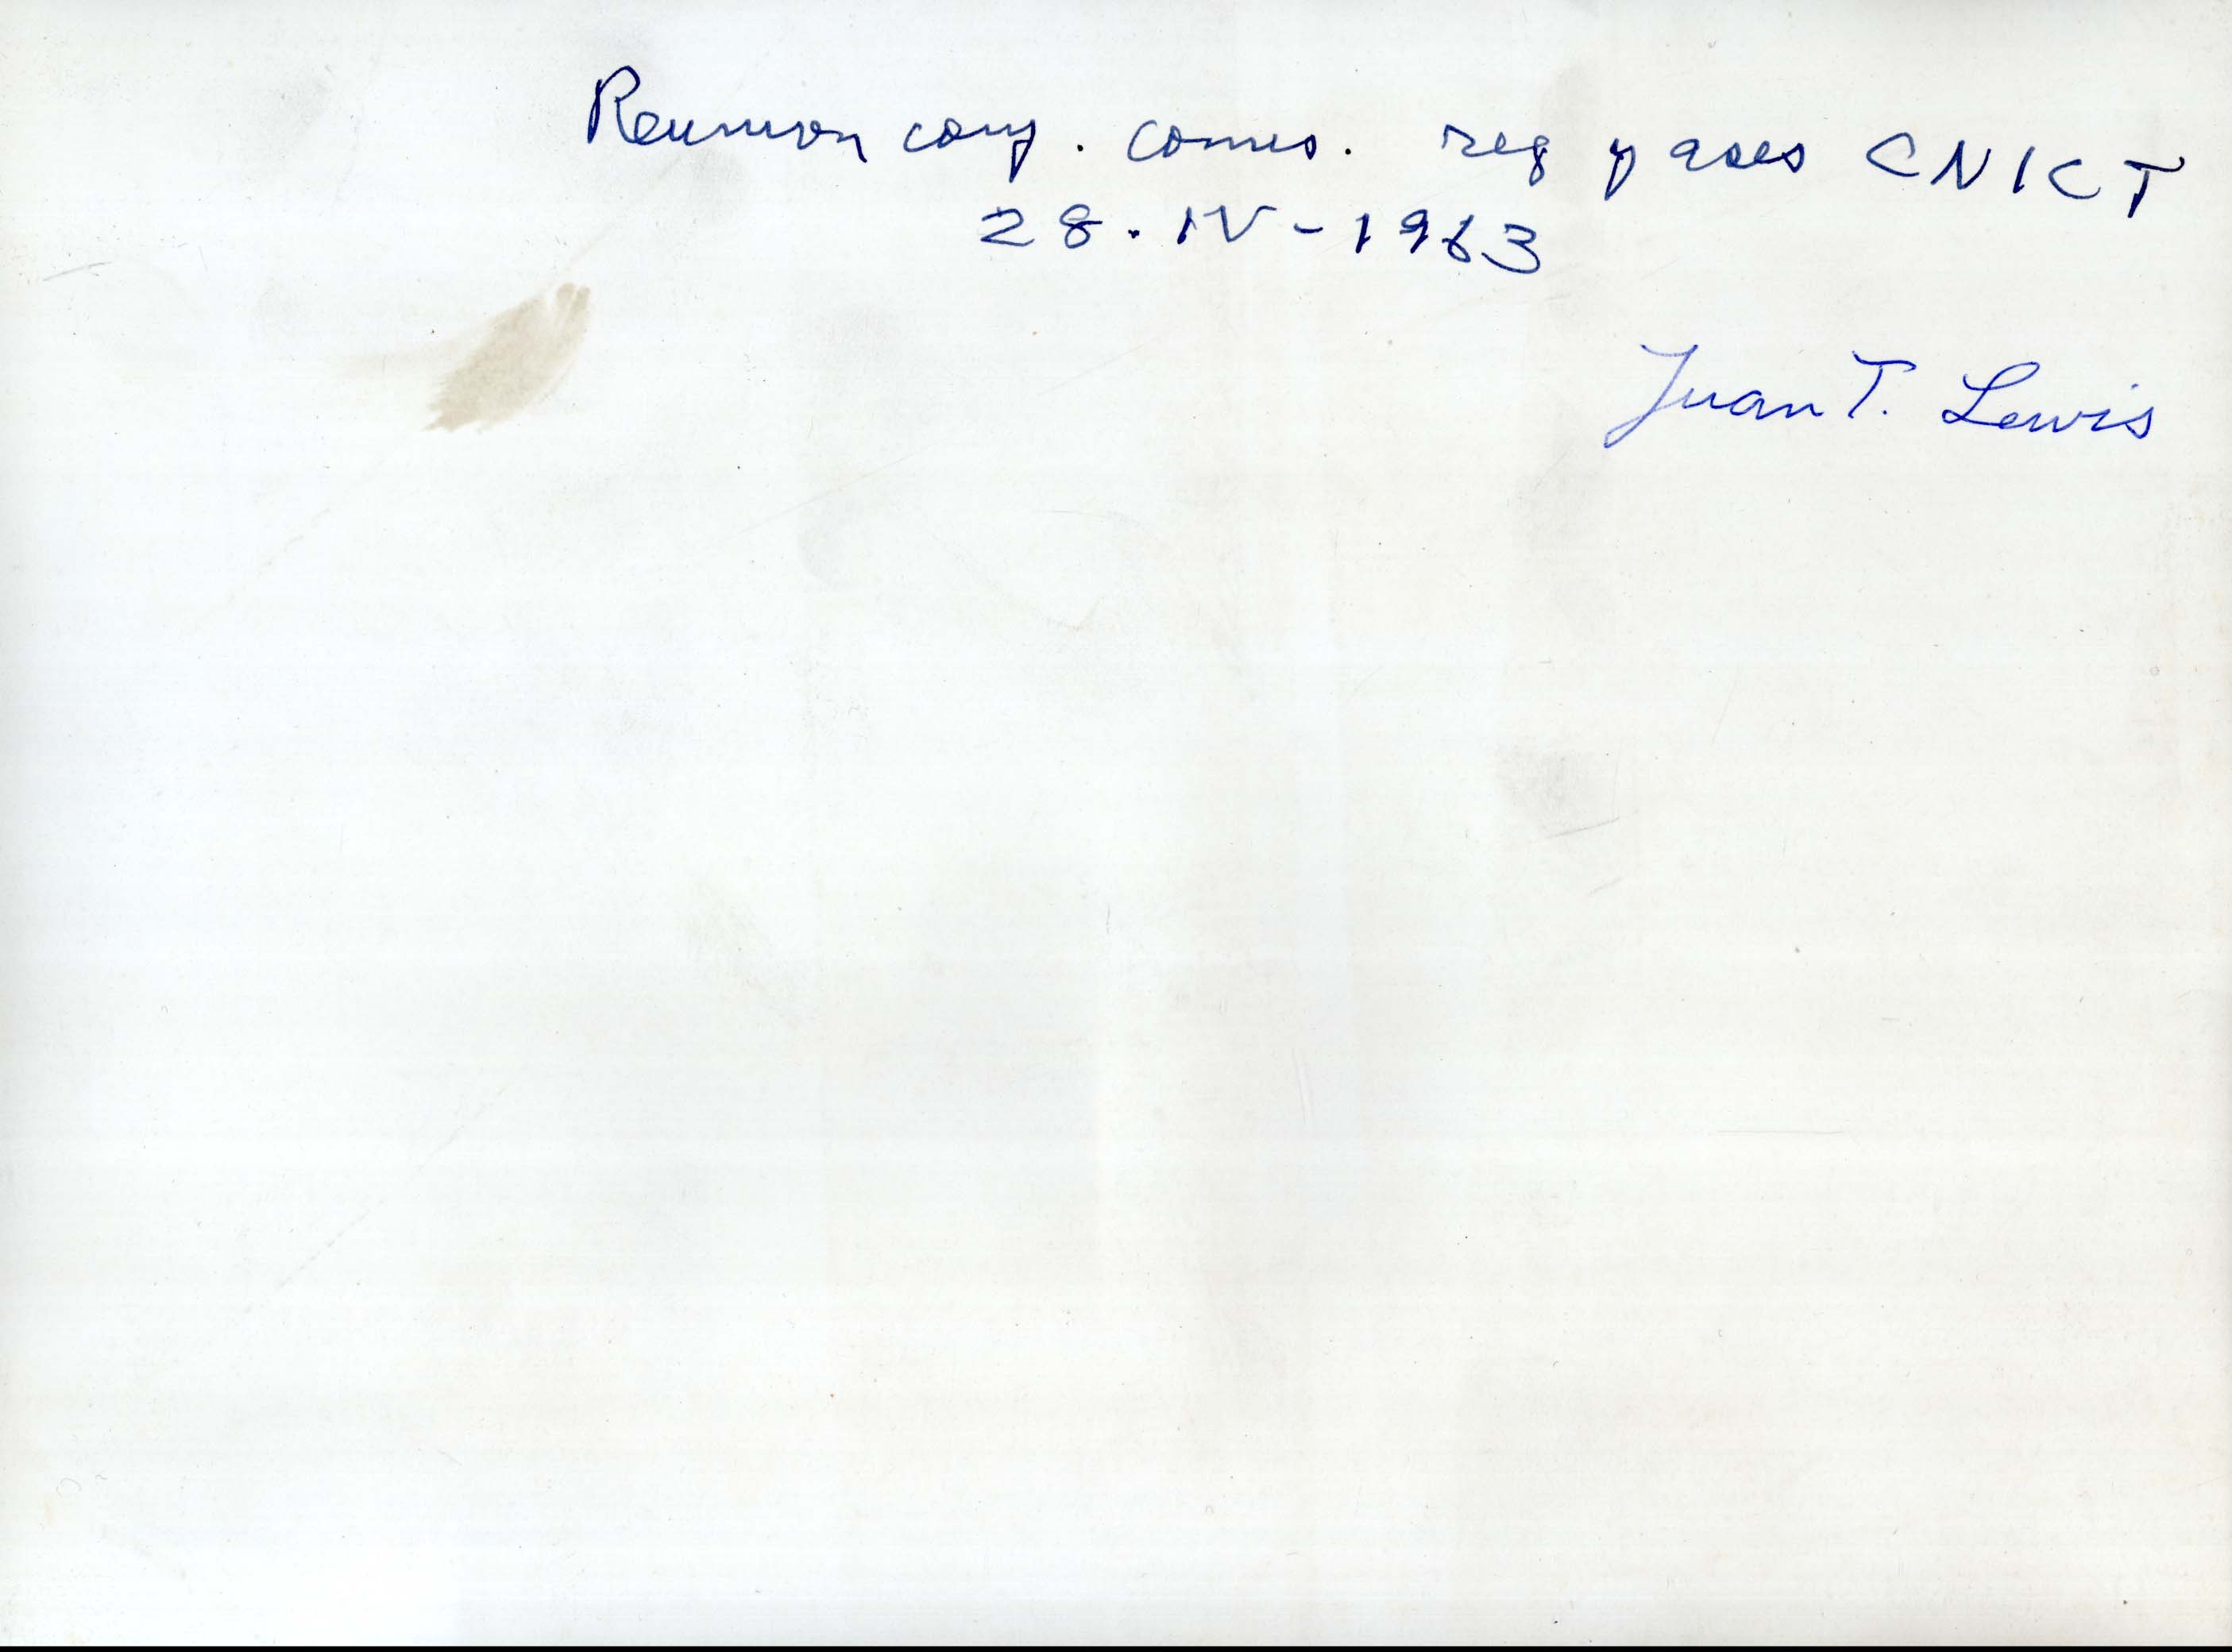 Reunion conj. comis. reg y ases CNICT
28.IV-1963
Juan T. Lewis